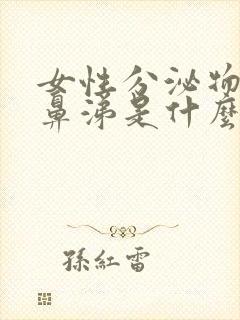 女性分泌物
鼻涕是什麼
孫紅雷